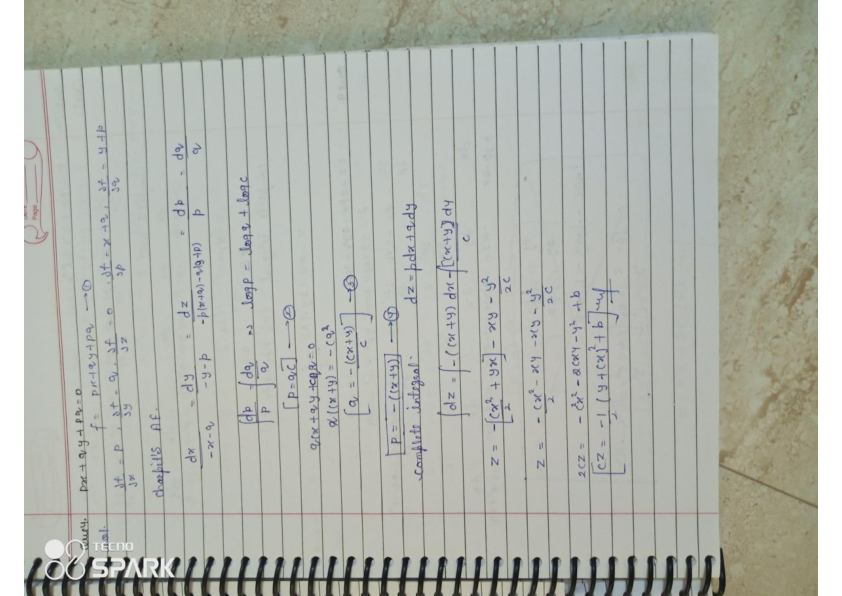 Ques4. px + qy + pq = 0
Sol. f = px + qy + pq → ①
∂f/∂x = p, ∂f/∂y = q, ∂f/∂z = 0, ∂f/∂p = x + q, ∂f/∂q = y + p
charpit's A.E.
dx/-x-q = dy/-y-p = dz/-p(x+q)-q(y+p) = dp/p = dq/q
∫dp/p = ∫dq/q ⇒ log p = log q + log c
[p = qc] → ②
qcx + qy + cq.q = 0
q(cx + y) = -cq²
[q = -(cx+y)/c] → ③
[p = -(cx+y)] → ④
complete integral: dz = pdx + qdy
∫dz = ∫-(cx+y) dx - ∫(cx+y)/c dy
z = -[cx²/2 + yx] - xy - y²/2c
z = -cx²/2 - xy - xy - y²/2c
2cz = -c²x² - 2cxy - y² + b
[cz = -1/2 (y + cx)² + b]
TECNO
SPARK
Page